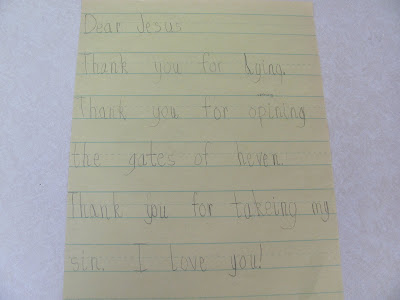 Dear Jesus
Thank you for dying.
Thank you for opining
the gates of heven.
Thank you for takeing my
sin. I love you!